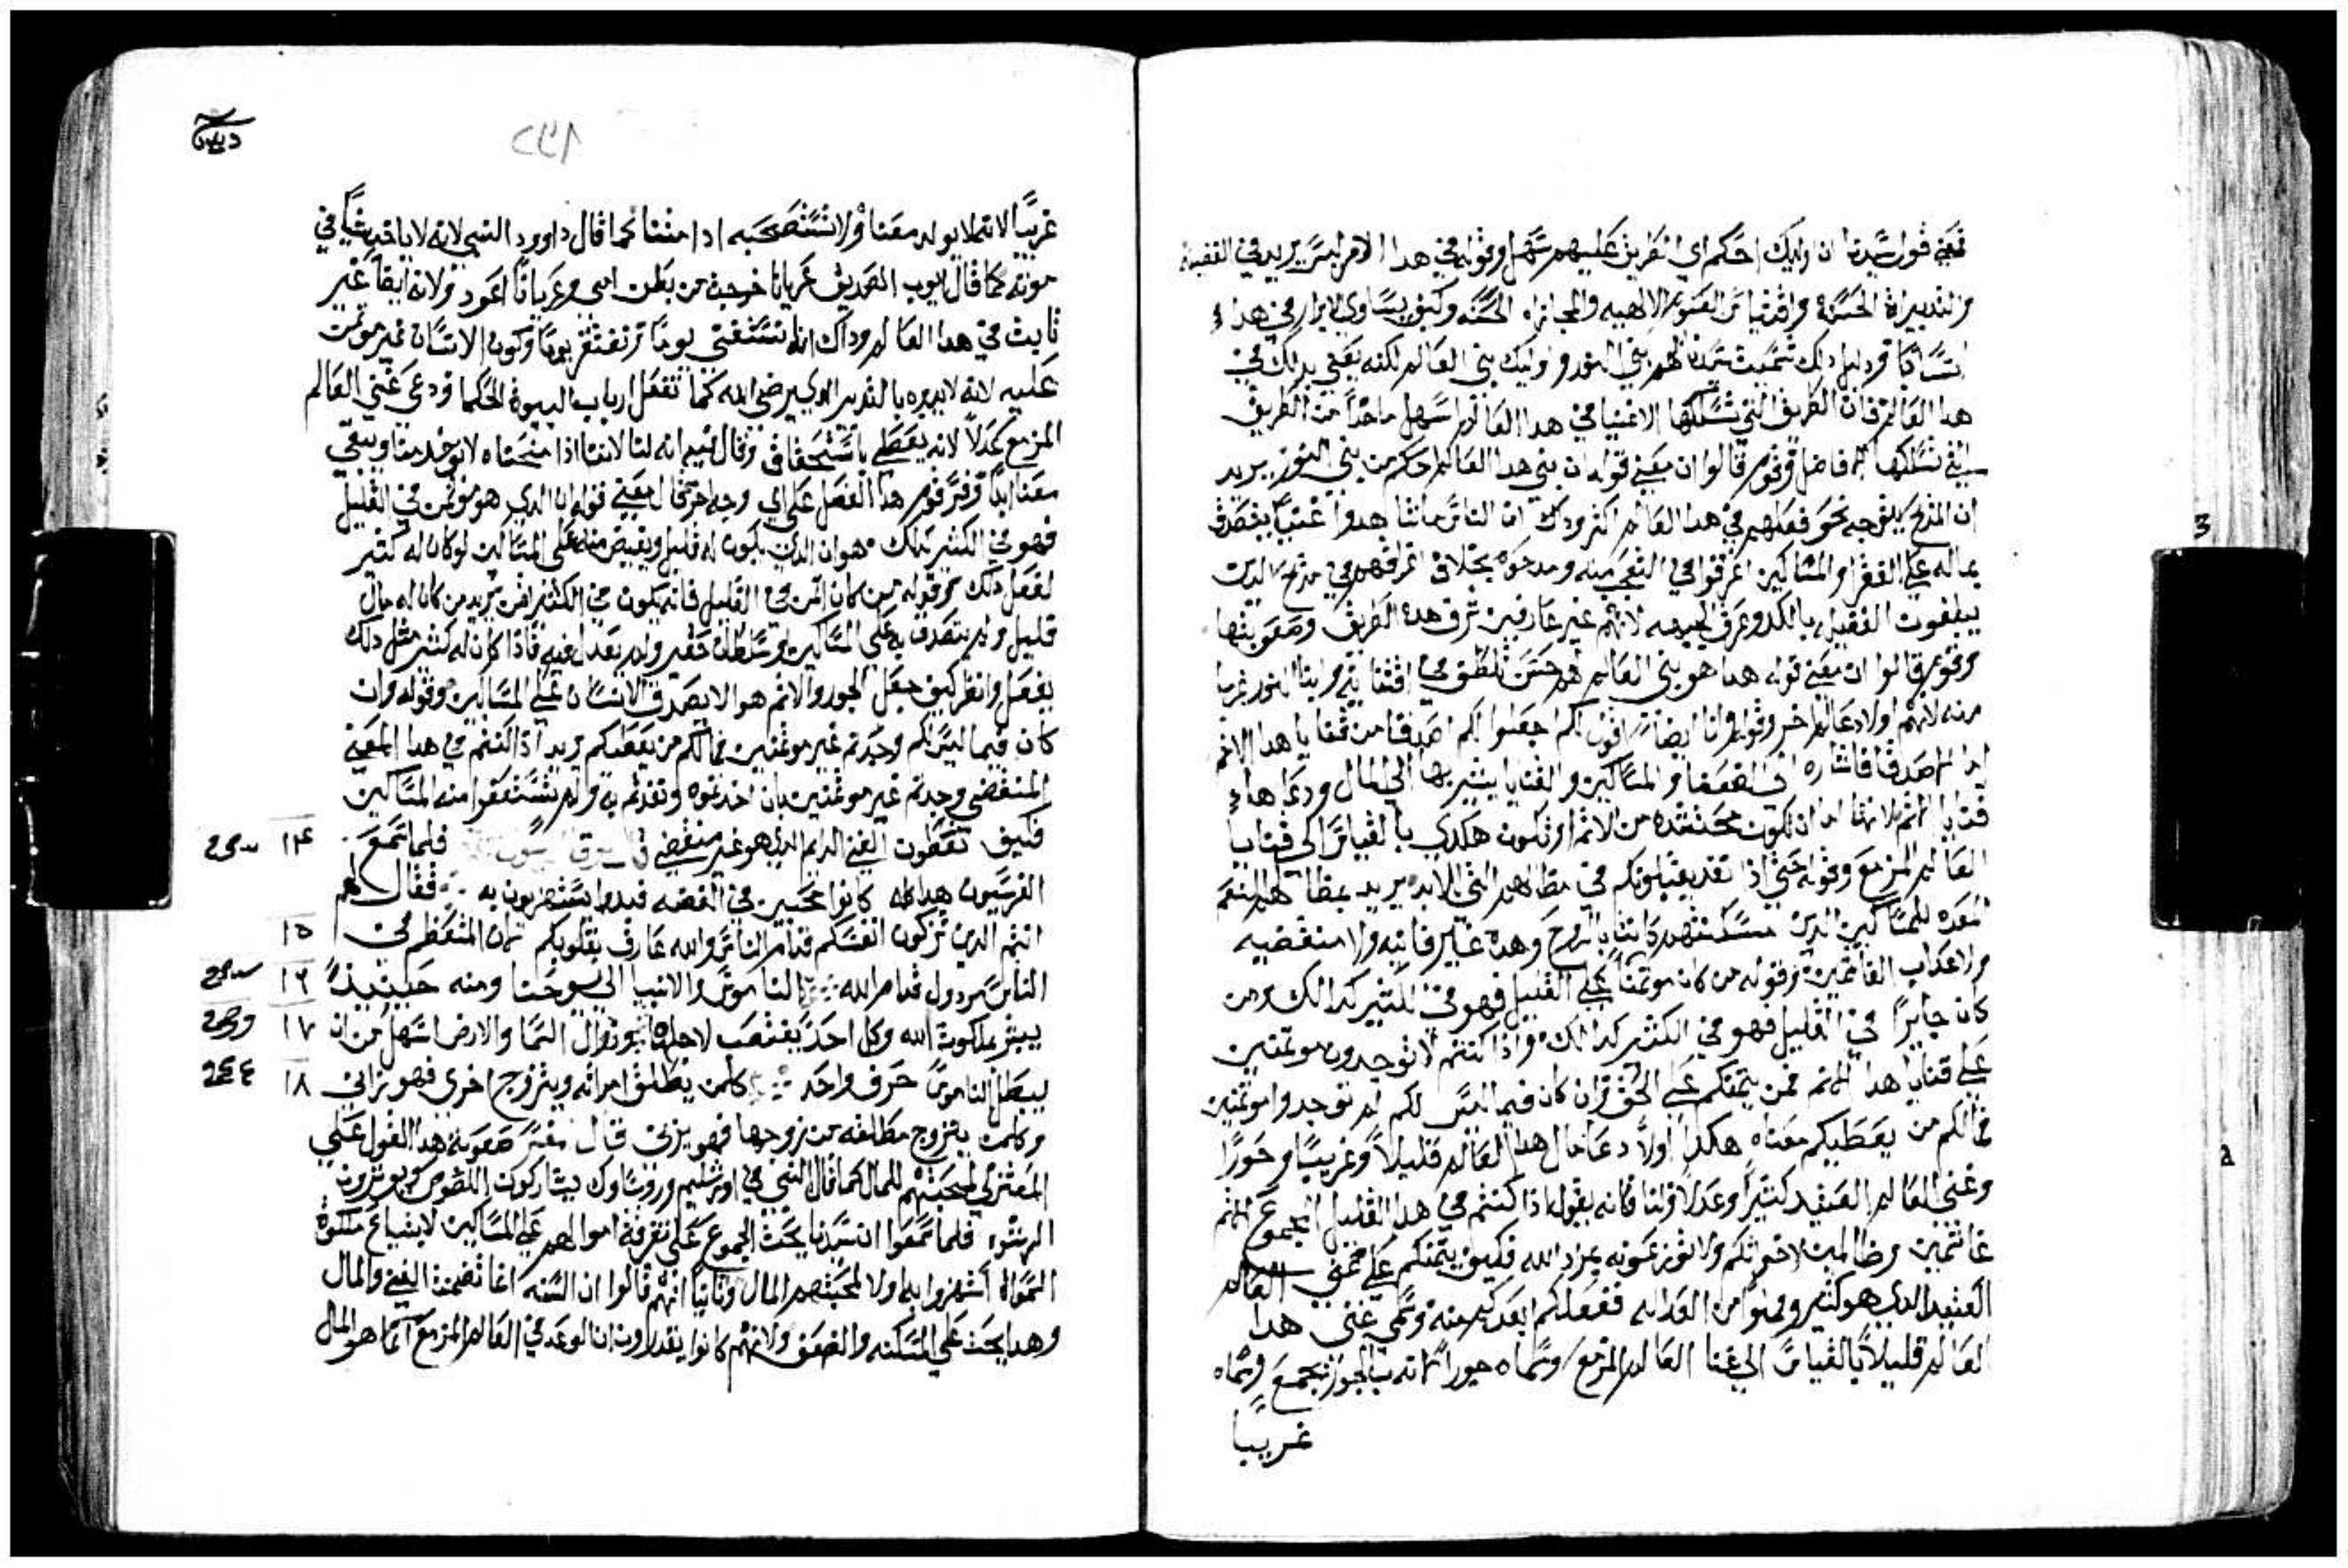 فمعني قول سيدنا ان اوليك احكم اي الطريق عليهم سهل وقوله في هدا الامر ليس يريد في الفضيله
والتدبيراة الحسنه واقتنا من العقوبه الالهيه والمجازاه الحسنه وكيف يتساوي الابرار في هدا
ودليل دلك تسميت بني النور واوليك بني العالم لكنه يعني بدلك في
هدا العالم فان الطريق التي تسلكها الاغنيا في هدا العالم اسهل ماخدا من الطريق
التي تسلكها الافاضل وقوم قالوا ان معني قوله ان بني هدا العالم احكم من بني النور يريد
ان المدح يتوجه نحو فعلهم في هدا العالم اكتر ودلك ان الناس متي شاهدوا غنيا يتصدق
بماله علي الفقرا والمساكين اغرقوا في التعجب منه ومدحوه بخلاف اغراقهم في مدح الدين
ينفقون القليل بالكد وعرق الجبهه لانهم غير عارفين شرف هده الطريق وصعوبتها
وقوم قالوا ان معني قوله هدا هو بني العالم لهم حسن تلطف في اقتنايه وابنا النور غربا
منه لانهم اولاد عالم اخر وقوله وانا ايضا اقول لكم اجعلوا لكم اصدقا من قنايا هدا الاتم
اما الاصدقا فاشاره الي الضعفا والمساكين والقنايا يشير بها الي المال ودعاها
قنايا الاتم لانها اما ان تكون محتشده من الاتم او تكون هكدي بالقياس الي قنايا
العالم المزمع وقوله حتي ادا نفد يقبلونكم في مظالهم التي للابد يريد بمظالهم النعم
المعده للمساكين الدين مسكنتهم كانت بالروح وهده غير فانيه ولا منقضيه
ولا عداب الغاشمين وقوله من كان موتمنا علي القليل فهو في الكتير كدالك ومن
كان جايرا في القليل فهو في الكتير كدالك وادا كنتم لا توجدون موتمنين
علي قنايا هدا الاتم فمن يتمنكم علي الحق وان كان فيما ليس لكم لم توجدوا موتمنين
فما لكم من يعطيكم معناه هكدا اولا دعا مال هدا العالم قليلا وغريبا وجورا
وغني العالم العتيد كتيرا وعدلا ولنا فانه يقول ادا كنتم في هدا القليل المجموع بالاتم
غاشمين وظالمين لاخوتكم ولا توزعونه بمراد الله فكيف يتمنكم علي غني العالم
العتيد الدي هو كتير ومملوا من العداله ففعلكم ابعدكم منه وسمي غني هدا
العالم قليلا بالقياس الي غنا العالم المزمع وسماه جورا لانه بالجور يجمع وسماه
غريبا
غريبا لانه لا يولد معنا ولا نستصحبه ادا متنا كما قال داوود النبي لانه لا ياخد شيا في
موته وكما قال ايوب الصديق عريانا خرجت من بطن امي وعريانا اعود ولانه ايضا غير
ثابت في هدا العالم ودلك انا نستغني يوما ونفتقر يوما وكون الانسان غير موتمن
عليه لانه لا يدبره بالتدبير الدي يرضي الله كما تفعل ارباب البيوة الحكما ودعي غني العالم
المزمع عدلا لانه يعطي باستحقاق وقال فيه انه لنا لاننا ادا منحناه لا يوخد منا ويبقي
معنا ابدا وفسر قوم هدا الفصل علي اي وجه اخر قال معني قوله ان الدي هو موتمن في القليل
فهو في الكتير كدلك هو ان الدي يكون له قليل ويفيض منه علي المساكين لو كان له كتير
لفعل دلك وقوله من كان اتم في القليل فانه يكون في الكتير اتم يريد من كان له مال
قليل ولم يتصدق به علي المساكين او سلطان حقير ولم يعدل فيه فادا كان له كتير متل دلك
يفعل وانظر كيف جعل الجور والاتم هو الا يصدق الانسان علي المساكين وقوله وان
كان فيما ليس لكم وجدتم غير موتمنين فما لكم من يعطيكم يريد ادا كنتم في هدا المعني
المنقضي وجدتم غير موتمنين بان اخدتموه وتفردتم به ولم تشبعوا منه المساكين
فكيف تعطون الغني الدايم الدي هو غير منقضي فلما سمع ١٤
الفريسيون هدا كله كانوا محبين في الفضه فبدوا يستهزيون به فقال لهم
انتم الدين تزكون انفسكم قدام الناس والله عارف بقلوبكم لان المتعظم في ١٥
الناس مردول قدام الله الناموس والانبيا الي يوحنا ومنه حينيد ١٦
يبشر بملكوت الله وكل احد يغتصب لاجلها وزوال السما والارض اسهل من ان ١٧
يبطل الناموس حرف واحد كلمن يطلق امراته ويتزوج اخري فهو يزاني ١٨
وكلمن يتزوج مطلقه من زوجها فهو يزني قال مفسر صعوبة هدا القول علي
المعتزلي لمحبتهم للمال كما قال النبي في اورشليم وروساوك يشاركون اللصوص ويوترون
الرشوه فلما سمعوا ان سيدنا يحث الجموع علي تفرقة اموالهم علي المساكين لابتياع ملكوة
السماوات استهزوا به اولا لمحبتهم المال وتانيا انهم قالوا ان السنه انما تضمنت الغني والمال
وهدا يحث علي المسكنه والضعف ولانهم كانوا يقدرون ان الوعد في العالم المزمع انما هو المال